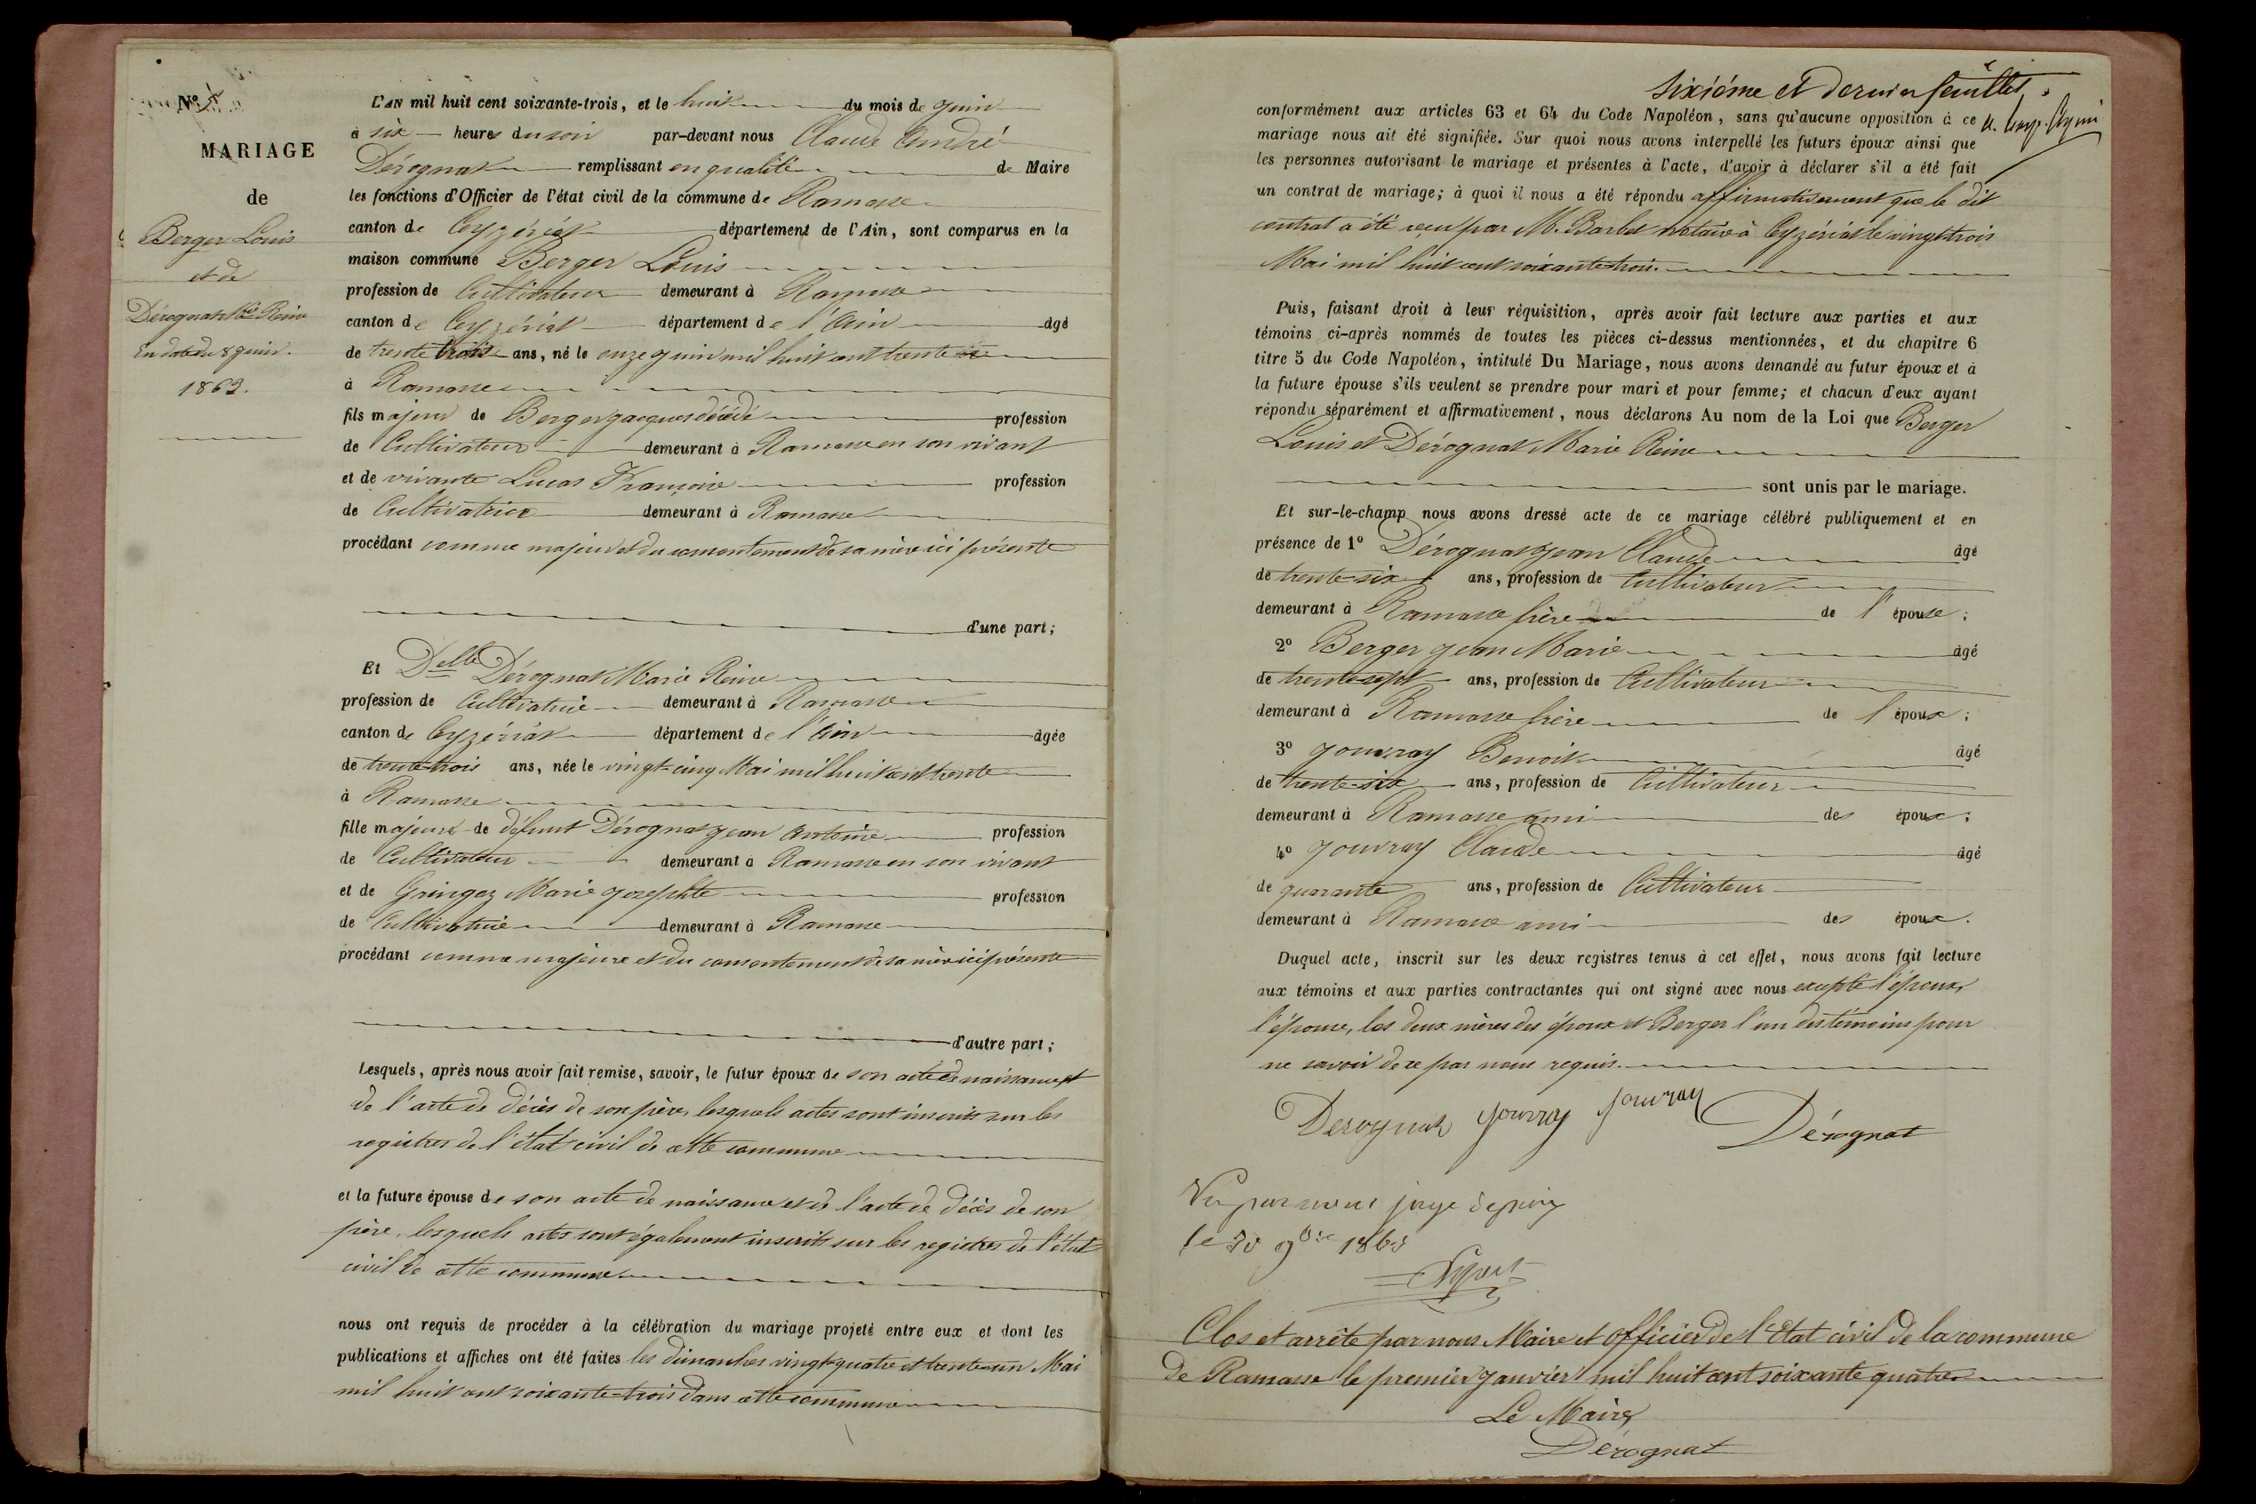 Nº
MARIAGE
de
Berger Louis
et de
Dérognat Mie Reine
En date du 8 juin.
1863.
L'AN mil huit cent soixante-trois, et le huit du mois de juin
à six heures du soir par-devant nous Claude André
Dérognat remplissant en qualité de Maire
les fonctions d'Officier de l'état civil de la commune de Ramasse
canton de Ceyzériat département de l'Ain, sont comparus en la
maison commune Berger Louis
profession de Cultivateur demeurant à Ramasse
canton de Ceyzériat département de l'Ain âgé
de trente trois ans, né le onze juin mil huit cent trente
à Ramasse
fils majeur de Berger Jacques décédé profession
de Cultivateur demeurant à Ramasse en son vivant
et de vivante Lucas Françoise profession
de Cultivatrice demeurant à Ramasse
procédant comme majeur et du consentement de sa mère ici présente
d'une part;
Et Delle Dérognat Marie Reine
profession de Cultivatrice demeurant à Ramasse
canton de Ceyzériat département de l'Ain âgée
de trente-trois ans, née le vingt-cinq Mai mil huit cent trente
à Ramasse
fille majeure de défunt Dérognat Jean Antoine profession
de Cultivateur demeurant à Ramasse en son vivant
et de Gringoz Marie Josephte profession
de Cultivatrice demeurant à Ramasse
procédant comme majeure et du consentement de sa mère ici présente
d'autre part;
Lesquels, après nous avoir fait remise, savoir, le futur époux de son acte de naissance et
de l'acte de décès de son père, lesquels actes sont inscrits sur les
registres de l'état civil de cette commune
et la future épouse de son acte de naissance et de l'acte de décès de son
père, lesquels actes sont également inscrits sur les registres de l'état
civil de cette commune
nous ont requis de procéder à la célébration du mariage projeté entre eux et dont les
publications et affiches ont été faites les dimanches vingt-quatre et trente-un Mai
mil huit cent soixante-trois dans cette commune
Sixième et dernier feuillet.
conformément aux articles 63 et 64 du Code Napoléon, sans qu'aucune opposition à ce
mariage nous ait été signifiée. Sur quoi nous avons interpellé les futurs époux ainsi que
les personnes autorisant le mariage et présentes à l'acte, d'avoir à déclarer s'il a été fait
un contrat de mariage; à quoi il nous a été répondu affirmativement que le dit
contrat a été reçu par M. Barbet notaire à Ceyzériat le vingt trois
Mai mil huit cent soixante-trois.
Puis, faisant droit à leur réquisition, après avoir fait lecture aux parties et aux
témoins ci-après nommés de toutes les pièces ci-dessus mentionnées, et du chapitre 6
titre 5 du Code Napoléon, intitulé Du Mariage, nous avons demandé au futur époux et à
la future épouse s'ils veulent se prendre pour mari et pour femme; et chacun d'eux ayant
répondu séparément et affirmativement, nous déclarons Au nom de la Loi que Berger
Louis et Dérognat Marie Reine
sont unis par le mariage.
Et sur-le-champ nous avons dressé acte de ce mariage célébré publiquement et en
présence de 1º Dérognat Jean Claude âgé
de trente-six ans, profession de Cultivateur
demeurant à Ramasse frère de l'épouse;
2º Berger Jean Marie âgé
de trente-sept ans, profession de Cultivateur
demeurant à Ramasse frère de l'époux;
3º Jouvray Benoit âgé
de trente-six ans, profession de Cultivateur
demeurant à Ramasse ami des époux;
4º Jouvray Claude âgé
de quarante ans, profession de Cultivateur
demeurant à Ramasse ami des époux.
Duquel acte, inscrit sur les deux registres tenus à cet effet, nous avons fait lecture
aux témoins et aux parties contractantes qui ont signé avec nous excepté l'époux,
l'épouse, les deux mères des époux et Berger l'un des témoins pour
ne savoir de ce par nous requis.
Derognat Jouvray Jouvray
Dérognat
Vu par nous juge de paix
le 30 9bre 1863
Clos et arrête par nous Maire et officier de l'Etat civil de la commune
de Ramasse le premier janvier mil huit cent soixante quatre
Le Maire,
Dérognat